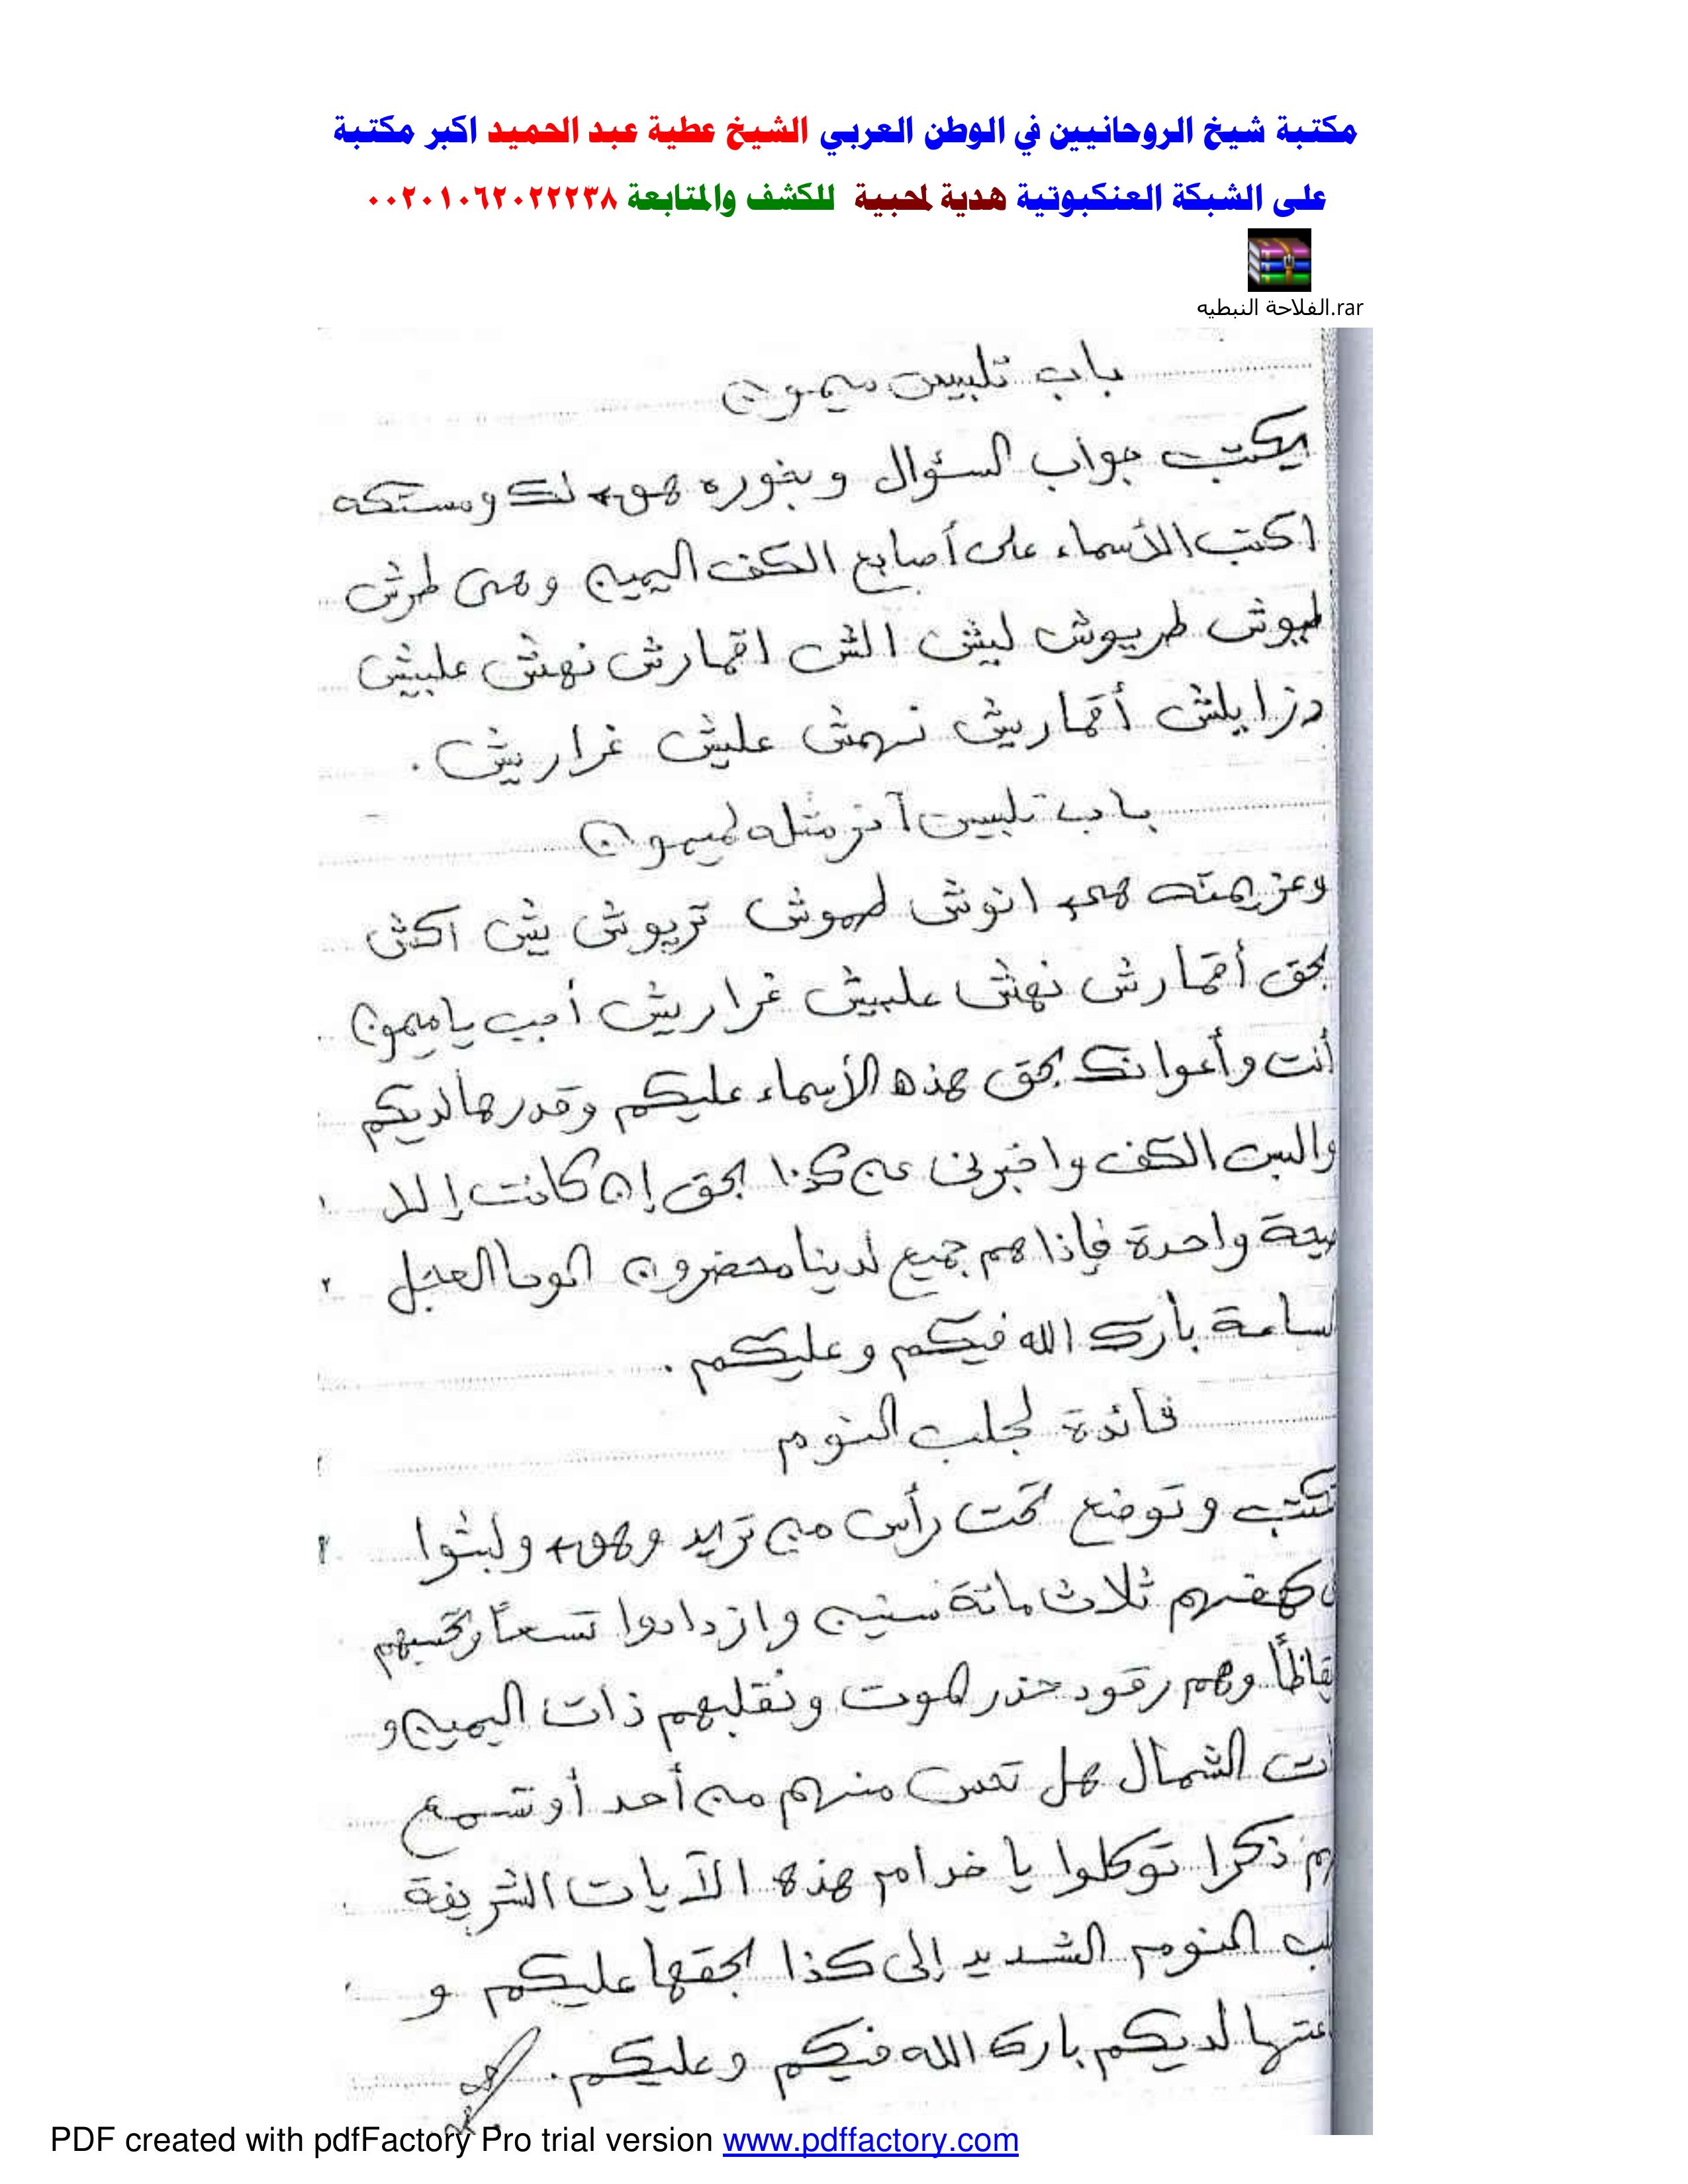 مكتبة شيخ الروحانيين في الوطن العربي الشيخ عطية عبد الحميد اكبر مكتبة
على الشبكة العنكبوتية هدية لمحبية للكشف والمتابعة ٠٠٢٠١٠٦٢٠٢٢٢٣٨
الفلاحة النبطيه.rar
باب تلبيس ميمون
يكتب جواب السؤال وبخوره هو لك ومستكه
اكتب الأسماء على أصابع الكف اليمين وهى طرش
طيوش طريوش ليش الش اقمارش نهش علبيش
درزايلش أقماريش نهمش عليش غراريش .
باب تلبيس آخر مثله لميمون
وعزيمته هى انوش لهموش تريوش يش اكش
بحق أقمارش نهش علبيش غراريش أجب يا ميمون
أنت وأعوانك بحق هذه الأسماء عليكم وقدرها لديكم
والبس الكف واخبرنى عن كذا بحق إن كانت إلا
يحة واحدة فإذا هم جميع لدينا محضرون الوحا العجل
لساعة بارك الله فيكم وعليكم .
فائدة لجلب النوم
تكتب وتوضع تحت رأس من تريد وهو ولبثوا
كهفهم ثلاث مائة سنين وازدادوا تسعاً وتحسبهم
يقاظاً وهم رقود حذر الموت ونقلبهم ذات اليمين و
ات الشمال هل تحس منهم من أحد أو تسمع
هم ذكرا توكلوا يا خدام هذه الآيات الشريفة
لب النوم الشديد إلى كذا بحقها عليكم و
عتها لديكم بارك الله فيكم وعليكم .
PDF created with pdfFactory Pro trial version www.pdffactory.com